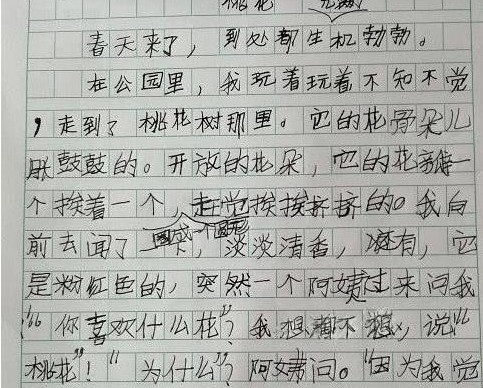 桃花
春天来了，到处都生机勃勃。
在公园里，我玩着玩着不知不觉
，走到了桃花树那里。它的花骨朵儿
胀鼓鼓的。开放的花朵，它的花瓣一
个挨着一个，挨挨挤挤的。我向
围成一个圆形
前去闻了，淡淡清香，还有，它
是粉红色的，突然一个阿姨过来问我
：“你喜欢什么花”？我想着不想，说“
桃花”！“为什么”？阿姨问。“因为我觉